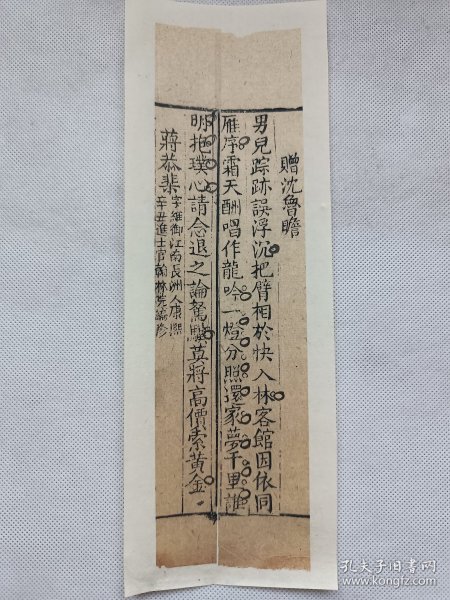 贈沈魯瞻
男兒踪跡誤浮沉把臂相於快入林客館因依同
雁序霜天酬唱作龍吟一燈分照還家夢千里誰
明抱璞心請念退之論駑驥莫將高價索黃金
蔣恭棐
字維御江南長洲人康熙
辛丑進士官翰林院編修
孔夫子旧书网
www.kongfz.com